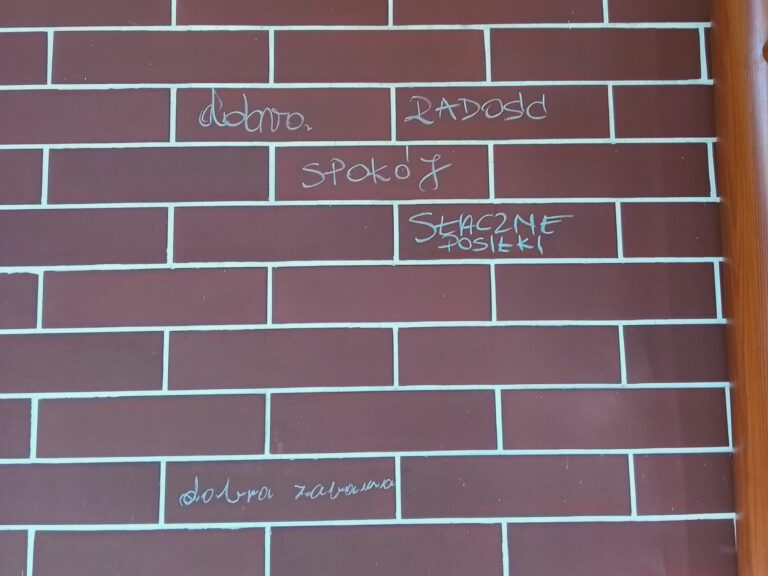 dobro.
RADOŚĆ
SPOKÓJ
SŁACZNE
POSIŁKI
dobra zabawa